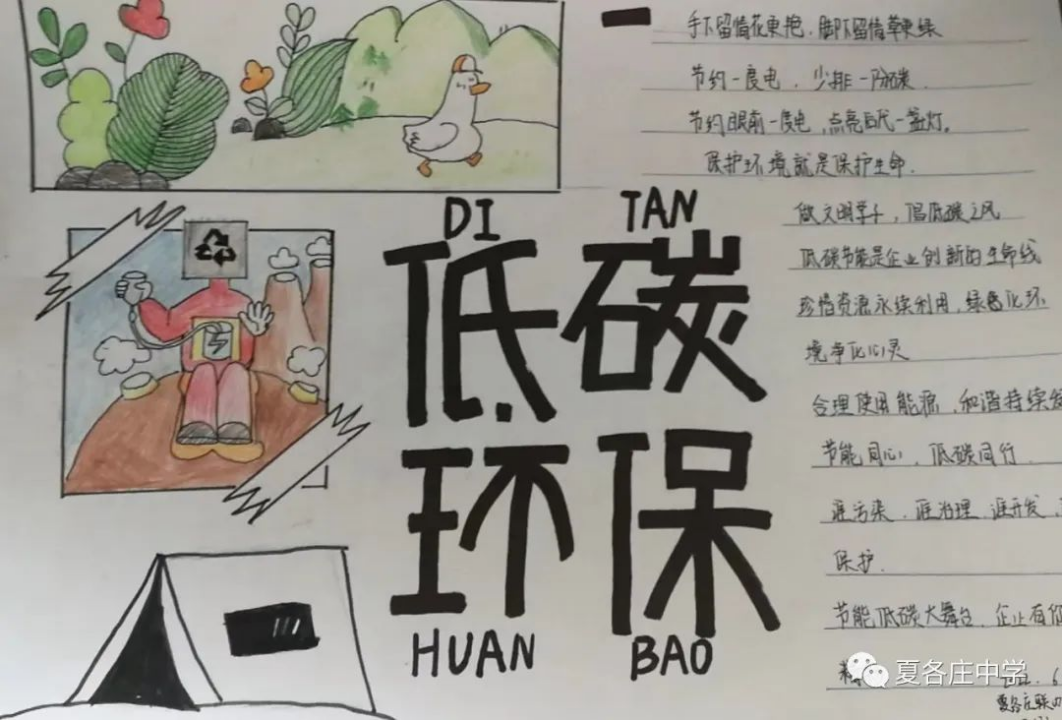 手下留情花更艳，脚下留情草更绿
节约一度电，少排一份碳.
节约眼前一度电，点亮后代一盏灯。
保护环境就是保护生命.
做文明学子，倡低碳之风
低碳节能是企业创新的生命线
珍惜资源永续利用，绿色化环
境净化心灵
合理使用能源，和谐持续发
节能同心，低碳同行.
谁污染，谁治理 谁开发，
保护.
节能低碳大舞台，企业有你
DI TAN
低碳
环保
HUAN BAO
夏各庄中学
夏各庄